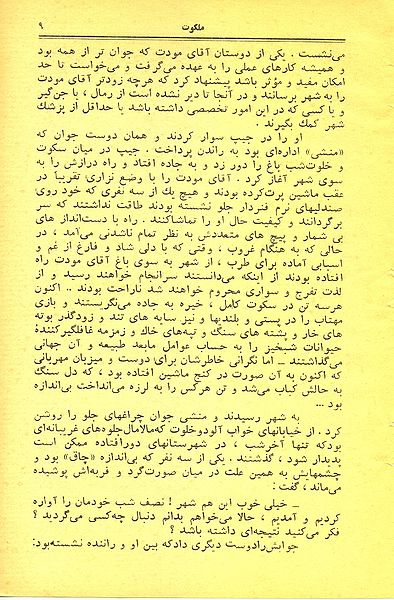 ملکوت ۹
می‌نشست . یکی از دوستان آقای مودت که جوان تر از همه بود
و همیشه کارهای عملی را به عهده می‌گرفت و می‌خواست تا حد
امکان مفید و مؤثر باشد پیشنهاد کرد که هرچه زودتر آقای مودت
را به شهر برسانند و در آنجا تا دیر نشده است از رمال ، یا جن‌گیر
و یا کسی که در این امور تخصصی داشته باشد یا حداقل از پزشك
شهر کمك بگیرند .
او را در جیپ سوار کردند و همان دوست جوان که
«منشی» اداره‌ای بود به راندن پرداخت . جیپ در میان سکوت
و خلوت‌شب باغ را دور زد و به جاده افتاد و راه درازش را به
سوی شهر آغاز کرد . آقای مودت را با وضع نزاری تقریبا در
عقب ماشین پرت‌کرده بودند و هیچ یك از سه نفری که خود روی
صندلیهای نرم فنردار جلو نشسته بودند طاقت نداشتند که سر
برگردانند و کیفیت حال او را تماشاکنند . راه با دست‌انداز های
بی شمار و پیچ های متعددش به نظر تمام ناشدنی می‌آمد ، در
حالی که به هنگام غروب ، وقتی که با دلی شاد و فارغ از غم و
اسبابی آماده برای طرب ، از شهر به سوی باغ آقای مودت راه
افتاده بودند از اینکه می‌دانستند سرانجام خواهند رسید و از
لذت تفرج و سواری محروم خواهند شد ناراحت بودند .. اکنون
هرسه تن در سکوت کامل ، خیره به جاده می‌نگریستند و بازی
مهتاب را در پستی و بلندیها و نیز سایه های تند و زودگذر بوته
های خار و پشته های سنگ و تپه‌های خاك و زمزمه غافلگیرکنندهٔ
حیوانات شبخیز را به حساب عوامل مابعد طبیعه و آن جهانی
می‌گذاشتند ــ اما نگرانی خاطرشان برای دوست و میزبان مهربانی
که اکنون به آن صورت در کنج ماشین افتاده بود ، که دل سنگ
به حالش کباب می‌شد و تن هرکس را به لرزه می‌انداخت بی‌اندازه
بود ...
به شهر رسیدند و منشی جوان چراغهای جلو را روشن
کرد . از خیابانهای خواب آلودوخلوت که‌مالامال‌جلوه‌های غریبانه‌ای
بودکه تنها آخرشب ، در شهرستانهای دورافتاده ممکن است
پدیدار شود ، گذشتند . یکی از سه نفر که بی‌اندازه «چاق» بود و
چشمهایش به همین علت در میان صورت‌گرد و فربه‌اش پوشیده
می‌ماند ، گفت :
ــ خیلی خوب این هم شهر ! نصف شب خودمان را آواره
کردیم و آمدیم ، حالا می‌خواهم بدانم دنبال چه‌کسی می‌گردید ؟
فکر می‌کنید نتیجه‌ای داشته باشد ؟
جوابش‌رادوست دیگری دادکه بین او و راننده نشسته‌بود: